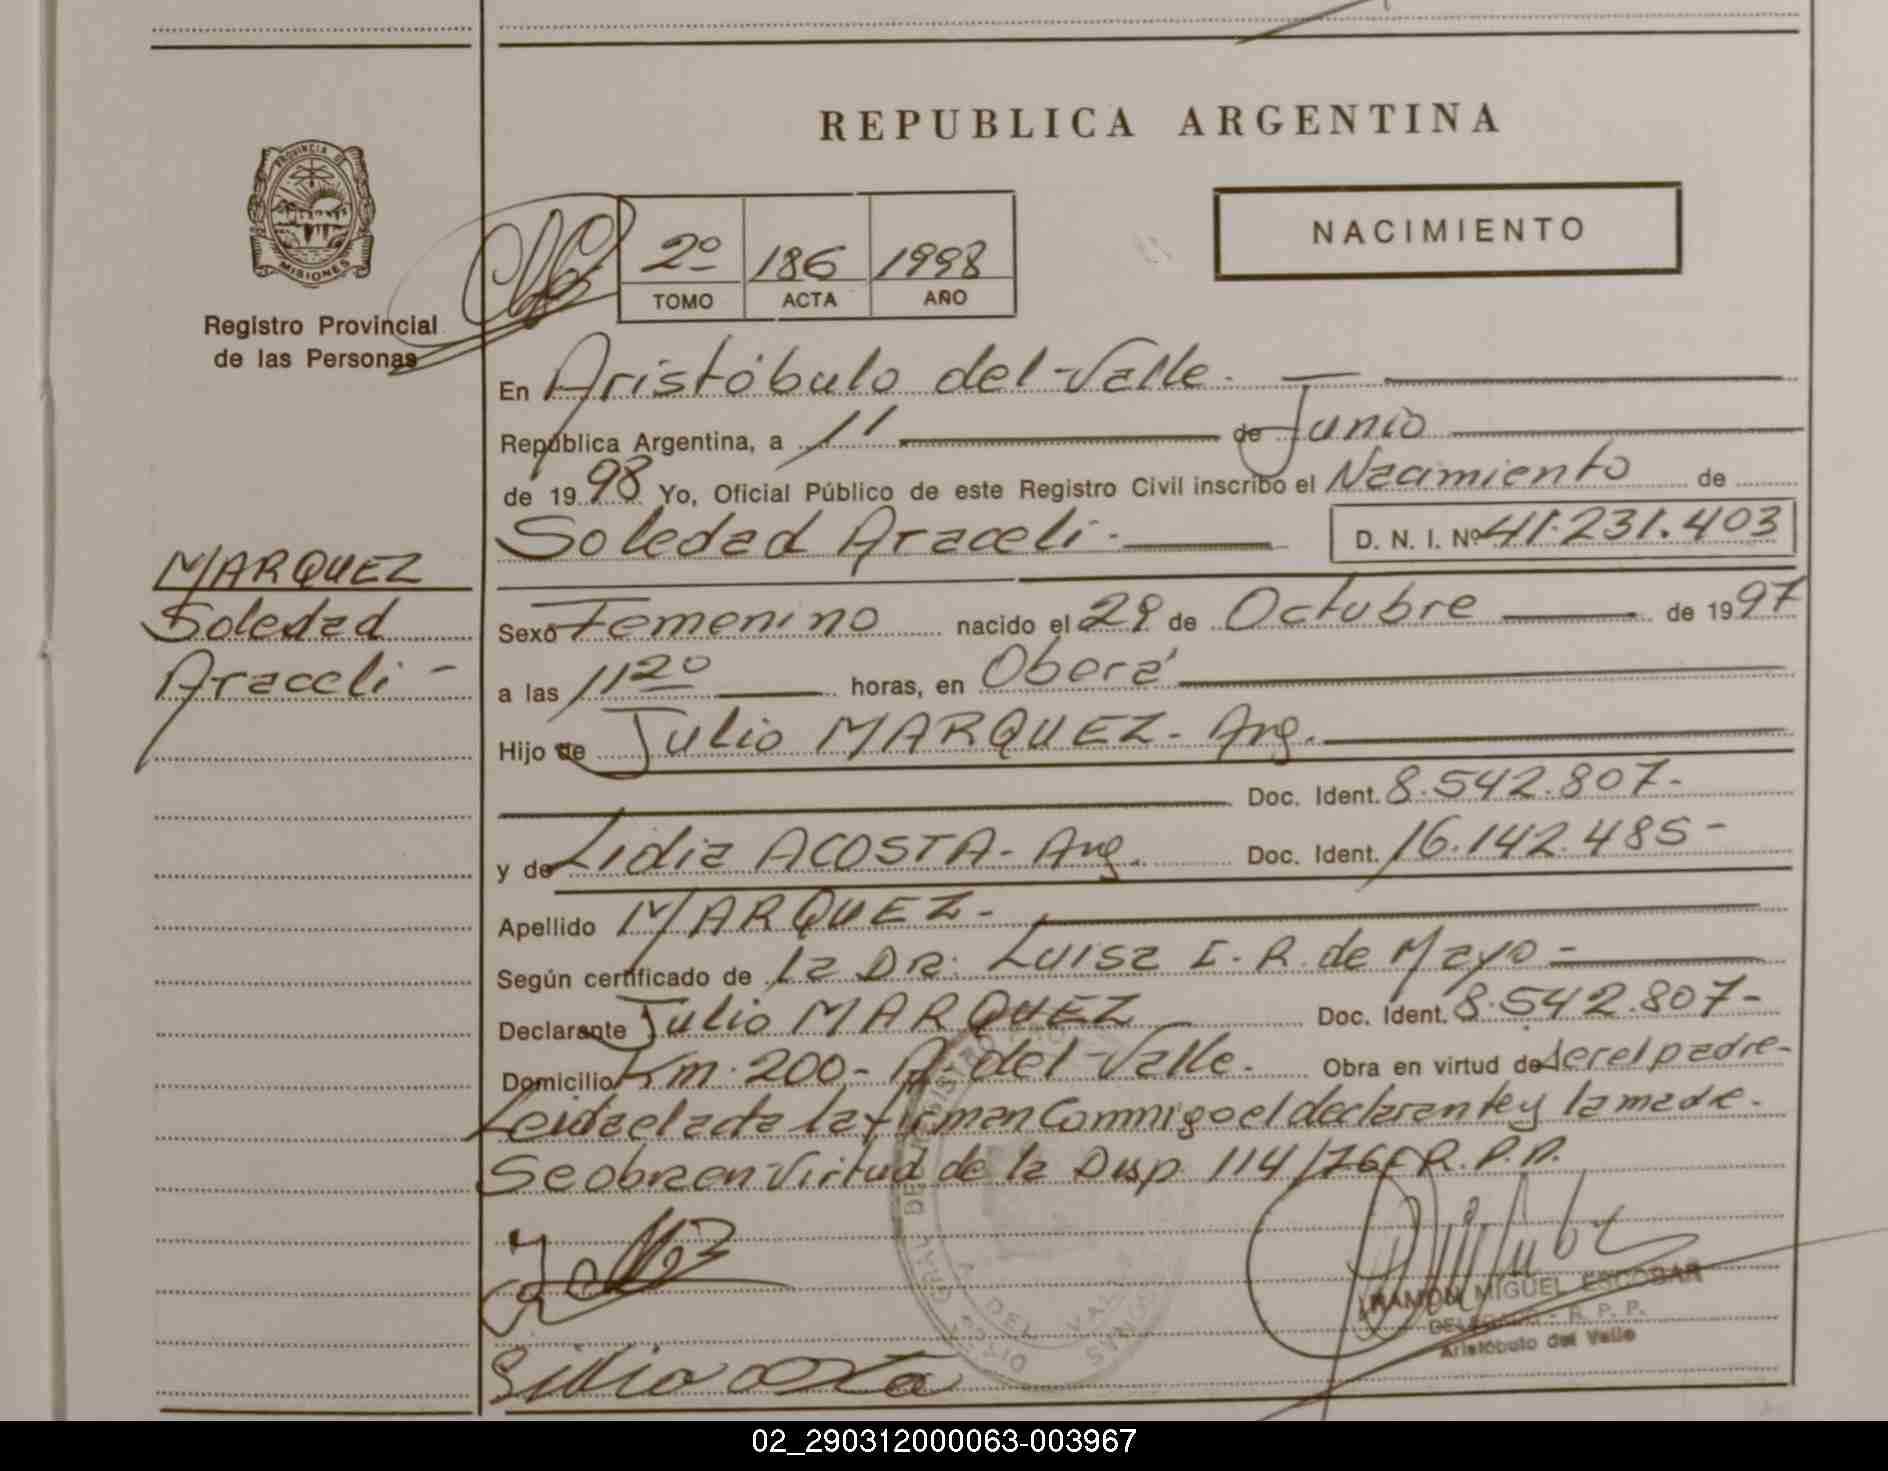 REPUBLICA ARGENTINA
PROVINCIA DE
MISIONES
Registro Provincial
de las Personas
2º 186 1998
TOMO ACTA AÑO
NACIMIENTO
En Aristóbulo del Valle.
República Argentina, a 11 de Junio
de 1998 Yo, Oficial Público de este Registro Civil inscribo el Nacimiento de
Soledad Araceli. D. N. I. Nº 41.231.403
MARQUEZ
Soledad
Araceli -
Sexo Femenino nacido el 29 de Octubre de 1997
a las 11 20 horas, en Oberá
Hijo de Julio MARQUEZ - Arg.
Doc. Ident. 8.542.807-
y de Lidia ACOSTA - Arg. Doc. Ident. 16.142.485-
Apellido MARQUEZ -
Según certificado de la DRa. Luisa I. R. de Mayo -
Declarante Julio MARQUEZ Doc. Ident. 8.542.807-
Domicilio Km. 200 - A. del Valle. Obra en virtud de ser el padre-
Leida el acta la firman Conmigo el declarante y la madre.
Se obra en Virtud de la Disp. 114/76 R.P.P.
RAMON MIGUEL ESCOBAR
DELEGADO - R. P. P.
Aristóbulo del Valle
02_290312000063-003967